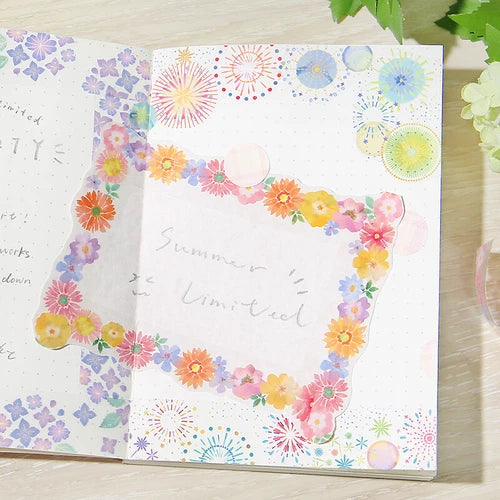 Limited
TY
t!
works
down
Summer
Limited